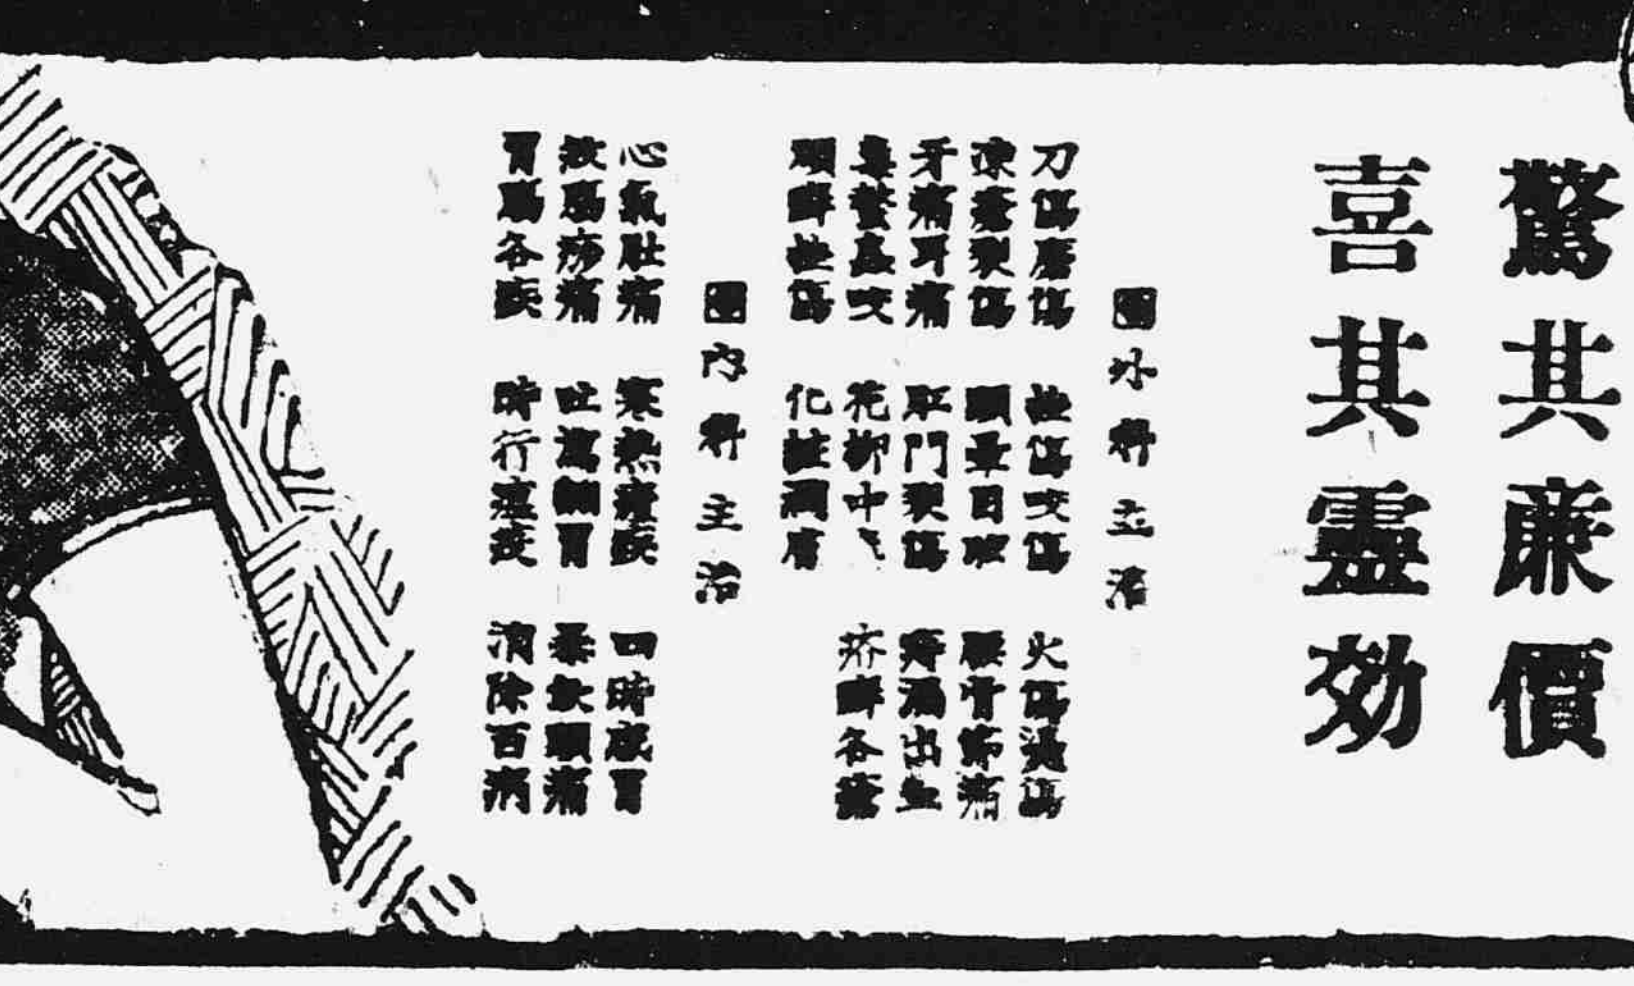 驚其廉價
喜其靈効
外科主治
刀傷磨傷 撞傷咬傷 火傷湯傷
凍瘡裂傷 頭暈目眩 腰骨節痛
牙痛耳痛 肛門裂傷 痔漏出血
毒螫蟲咬 花柳中 疥癬各瘡
頑癬挫傷 化粧潤膚
內科主治
心氣肚痛 寒熱瘧疾 四時感冒
絞腸痧痛 吐瀉翻胃 暴飲頭痛
胃腸各疾 時行瘟疫 消除百病